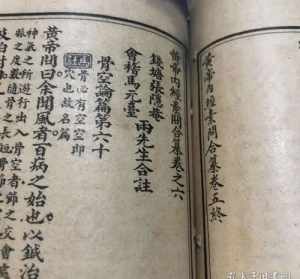 黃帝內經素問合纂卷五終
黃帝內經素問合纂卷之六
錢塘張隱菴
會稽馬元臺
兩先生合註
骨空論篇第六十
骨必有空空即
穴也故名篇
黃帝問曰余聞風者百病之始也以鍼治
神氣之所遊行出入骨空者節之交會